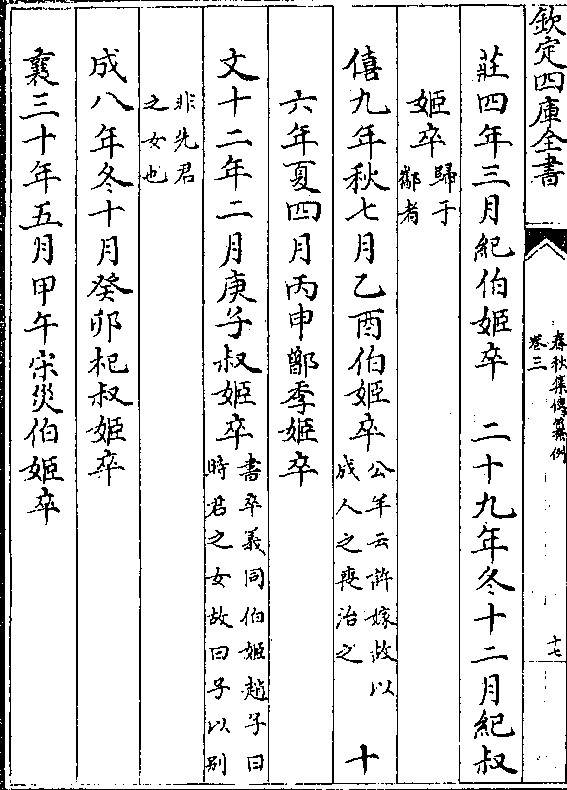 欽定四庫全書
春秋集傳纂例
卷三
十七
莊四年三月紀伯姬卒　二十九年冬十二月紀叔
姬卒歸于
酅者
僖九年秋七月乙酉伯姬卒公羊云許嫁故以
成人之喪治之　十
六年夏四月丙申鄫季姬卒
文十二年二月庚子叔姬卒書卒義同伯姬趙子曰
時君之女故曰子以别
非先君
之女也
成八年冬十月癸卯杞叔姬卒
襄三十年五月甲午宋災伯姬卒